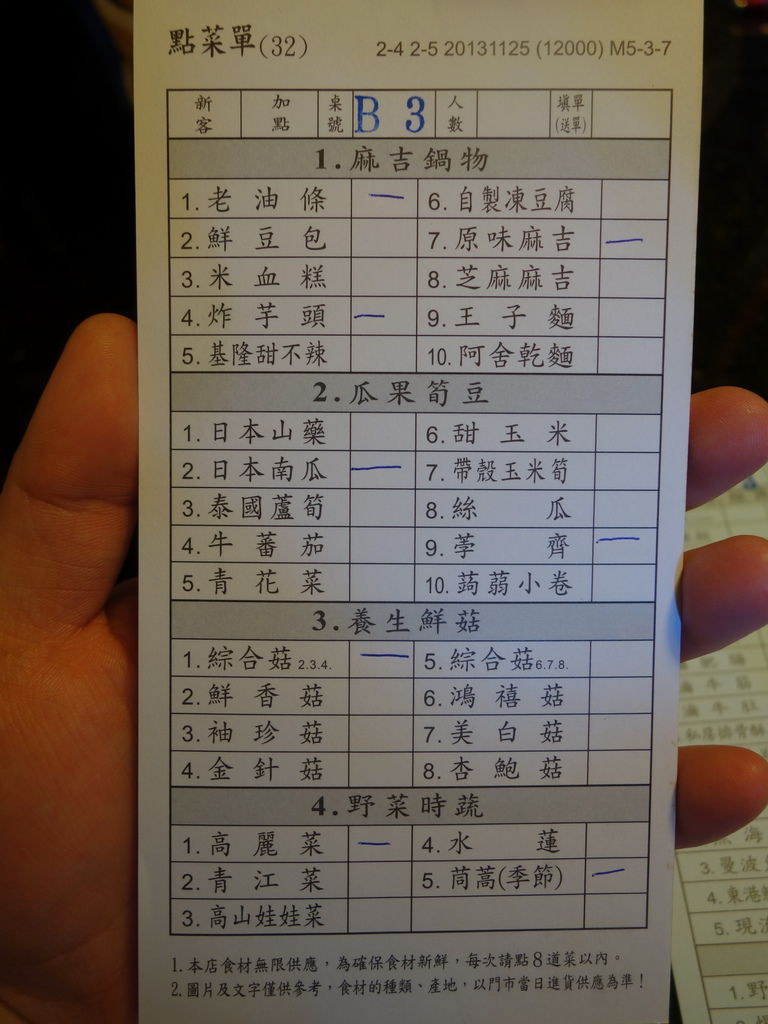 點菜單(32) 2-4 2-5 20131125 (12000) M5-3-7
新客 加點 桌號 B 3 人數 填單(送單)
1.麻吉鍋物
1.老油條 一 6.自製凍豆腐
2.鮮豆包 7.原味麻吉 一
3.米血糕 8.芝麻麻吉
4.炸芋頭 一 9.王子麵
5.基隆甜不辣 10.阿舍乾麵
2.瓜果筍豆
1.日本山藥 6.甜玉米
2.日本南瓜 一 7.帶殼玉米筍
3.泰國蘆筍 8.絲瓜
4.牛蕃茄 9.荸齊 一
5.青花菜 10.蒟蒻小卷
3.養生鮮菇
1.綜合菇2.3.4. 一 5.綜合菇6.7.8.
2.鮮香菇 6.鴻禧菇
3.袖珍菇 7.美白菇
4.金針菇 8.杏鮑菇
4.野菜時蔬
1.高麗菜 一 4.水蓮
2.青江菜 5.茼蒿(季節) 一
3.高山娃娃菜
1.本店食材無限供應，為確保食材新鮮，每次請點8道菜以內。
2.圖片及文字僅供參考，食材的種類、產地，以門市當日進貨供應為準！
3.曼波
4.東港
5.現
1.野